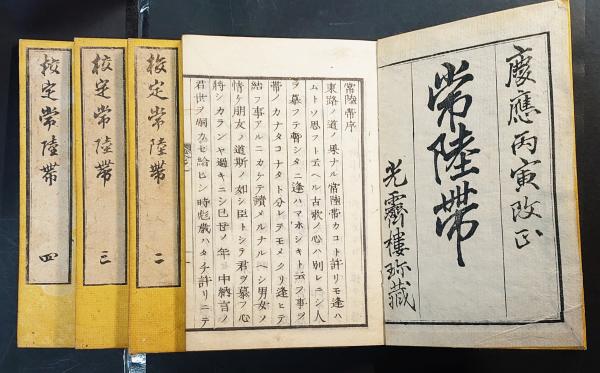 慶應丙寅改正
常陸帶
光霽樓珎藏
常陸帶序
東路ノ道ノ果ナル常陸帶カコト許リモ逢ハ
ムトソ思フト云ヘル古歌ノ心ハ別レニシ人
ヲ慕フテ暫シタニ逢ハマホシキト云フ事ヲ
帶ノカナタコナタト分レテモメクリ逢ヒテ
結フ事アルニカケテ讀メルナルヘシ男女ノ
情ケ朋友ノ道斯ノ如シ臣トシテ君ヲ慕フ心
將シカランヤ過キニシ己丑ノ年 中納言ノ
君世ヲ嗣カセ給ヒシ時彪歳ハタチ許リニテ
校定常陸帶 二
校定常陸帶 三
校定常陸帶 四